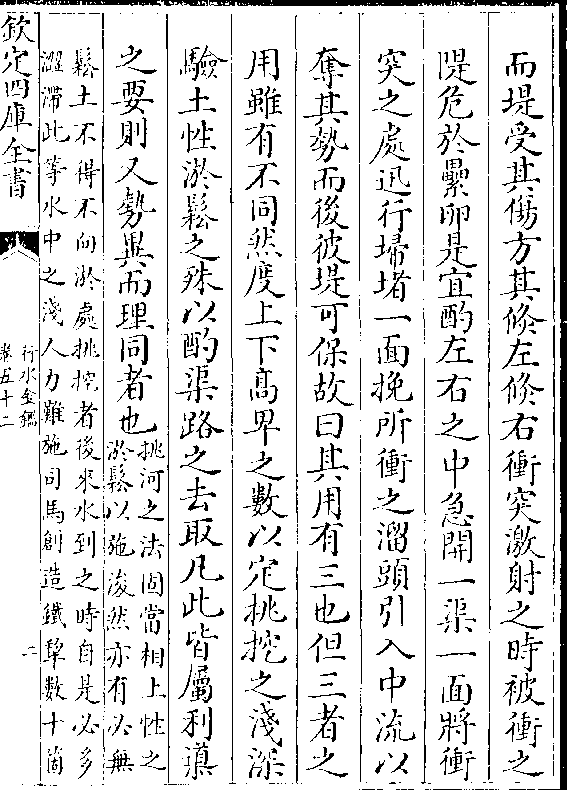 而堤受其傷方其倐左倐右衝突激射之時被衝之
隄危於纍卵是宜酌左右之中急開一渠一面將衝
突之處迅行埽堵一面挽所衝之溜頭引入中流以
奪其勢而後彼堤可保故曰其用有三也但三者之
用雖有不同然度上下高畀之數以定挑挖之淺深
驗土性淤鬆之殊以酌渠路之去取凡此皆屬利導
之要則又勢異而理同者也
挑河之法固當相土性之
淤鬆以施浚然亦有必無
鬆土不得不向淤處挑挖者後來水到之時自是必多
澀滯此等水中之淺人力難施司馬創造鐵犂數十箇
欽定四庫全書
行水金鑑
卷五十二
二